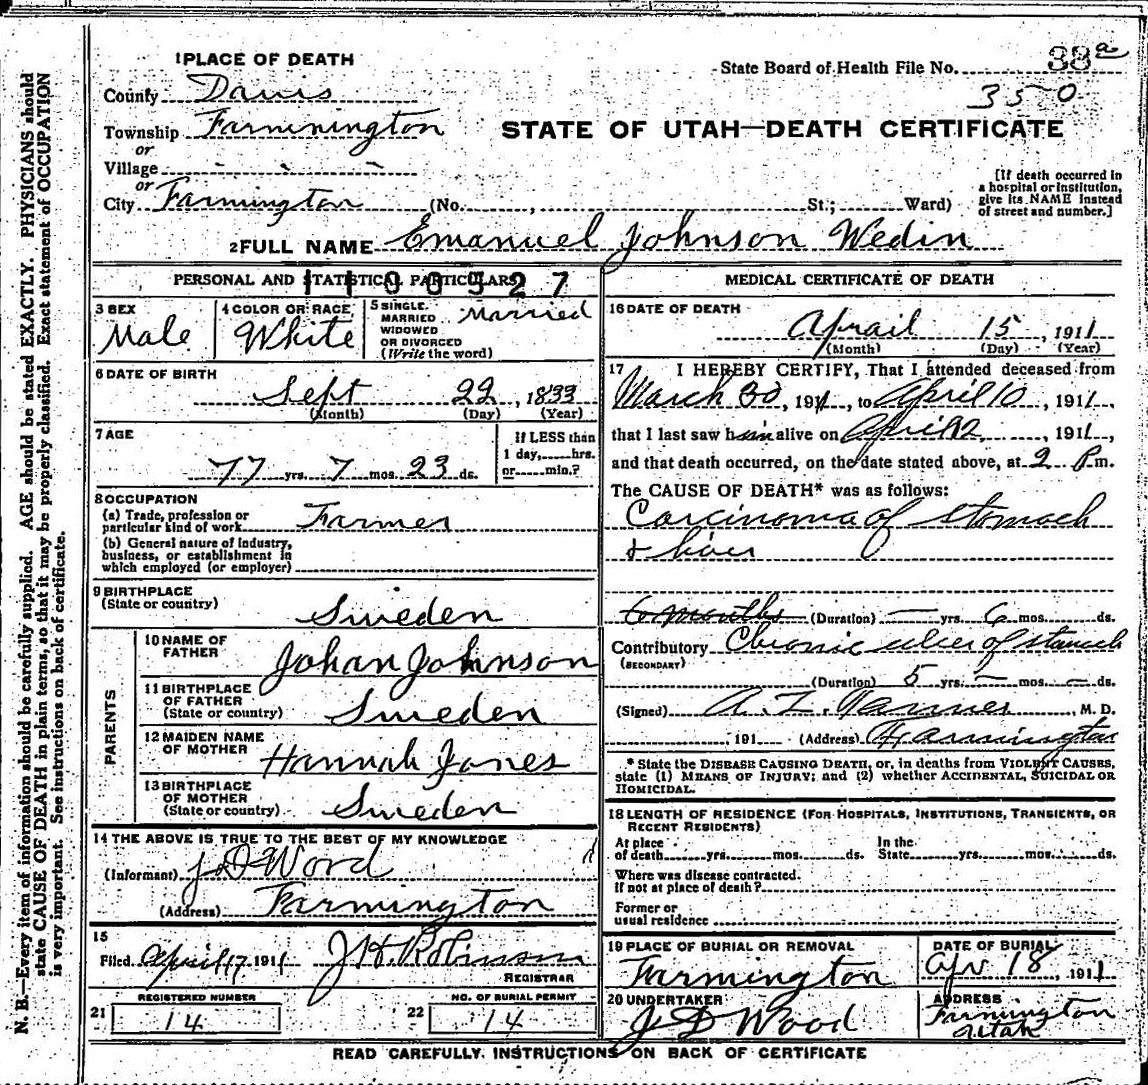 N. B.—Every item of information should be carefully supplied. AGE should be stated EXACTLY. PHYSICIANS should
state CAUSE OF DEATH in plain terms, so that it may be properly classified. Exact statement of OCCUPATION
is very important. See instructions on back of certificate.
State Board of Health File No. 38a
350
STATE OF UTAH—DEATH CERTIFICATE
1 PLACE OF DEATH
County Davis
Township Farmington
or
Village - - -
or
City Farmington (No. , St.; Ward)
[If death occurred in
a hospital or institution,
give its NAME instead
of street and number.]
2 FULL NAME Emanuel Johnson Wedin
PERSONAL AND STATISTICAL PARTICULARS
3 SEX
Male
4 COLOR OR RACE
White
5 SINGLE,
MARRIED
WIDOWED
OR DIVORCED
(Write the word)
Married
6 DATE OF BIRTH
Sept 22, 1833
(Month) (Day) (Year)
7 AGE
77 yrs. 7 mos. 23 ds.
If LESS than
1 day, hrs.
or min.?
8 OCCUPATION
(a) Trade, profession or
particular kind of work Farmer
(b) General nature of industry,
business, or establishment in
which employed (or employer)
9 BIRTHPLACE
(State or country)
Sweden
PARENTS
10 NAME OF
FATHER
Johan Johnson
11 BIRTHPLACE
OF FATHER
(State or country)
Sweden
12 MAIDEN NAME
OF MOTHER
Hannah Jones
13 BIRTHPLACE
OF MOTHER
(State or country)
Sweden
14 THE ABOVE IS TRUE TO THE BEST OF MY KNOWLEDGE
(Informant) J D Wood
(Address) Farmington
15
Filed April 17 1911 J. H. Robinson
REGISTRAR
21
REGISTERED NUMBER
14
22
NO. OF BURIAL PERMIT
14
MEDICAL CERTIFICATE OF DEATH
16 DATE OF DEATH
Aprail 15, 1911
(Month) (Day) (Year)
17 I HEREBY CERTIFY, That I attended deceased from
March 30, 1911, to April 10, 1911,
that I last saw him alive on April 12, 1911,
and that death occurred, on the date stated above, at 2 P.m.
The CAUSE OF DEATH* was as follows:
Carcinoma of Stomach
&
6 months (Duration) — yrs. 6 mos. ds.
Contributory Chronic ulcer of stomach
(SECONDARY)
(Duration) 5 yrs. — mos. — ds.
(Signed) , M. D.
, 191 (Address) Farmington
* State the DISEASE CAUSING DEATH, or, in deaths from VIOLENT CAUSES,
state (1) MEANS OF INJURY; and (2) whether ACCIDENTAL, SUICIDAL OR
HOMICIDAL.
18 LENGTH OF RESIDENCE (FOR HOSPITALS, INSTITUTIONS, TRANSIENTS, OR
RECENT RESIDENTS)
At place
of death yrs. mos. ds.
In the
State yrs. mos. ds.
Where was disease contracted.
If not at place of death?
Former or
usual residence
19 PLACE OF BURIAL OR REMOVAL
Farmington
DATE OF BURIAL
Apr 18, 1911
20 UNDERTAKER
J D Wood
ADDRESS
Farmington
Utah
READ CAREFULLY INSTRUCTIONS ON BACK OF CERTIFICATE